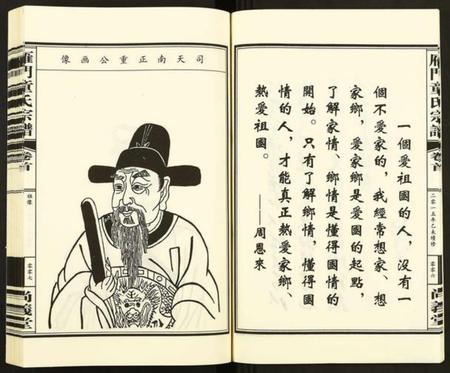 雁門童氏宗譜 卷首
二零一五年乙未續修
尚義堂
一個愛祖國的人，沒有一
個不愛家的，我經常想家、想
家鄉，愛家鄉是愛國的起點，
了解家情、鄉情是懂得國情的
開始。只有了解鄉情，懂得國
情的人，才能真正熱愛家鄉、
熱愛祖國。
——周恩來
司天南正重公画像
雁門童氏宗譜 卷首
祖像
尚義堂